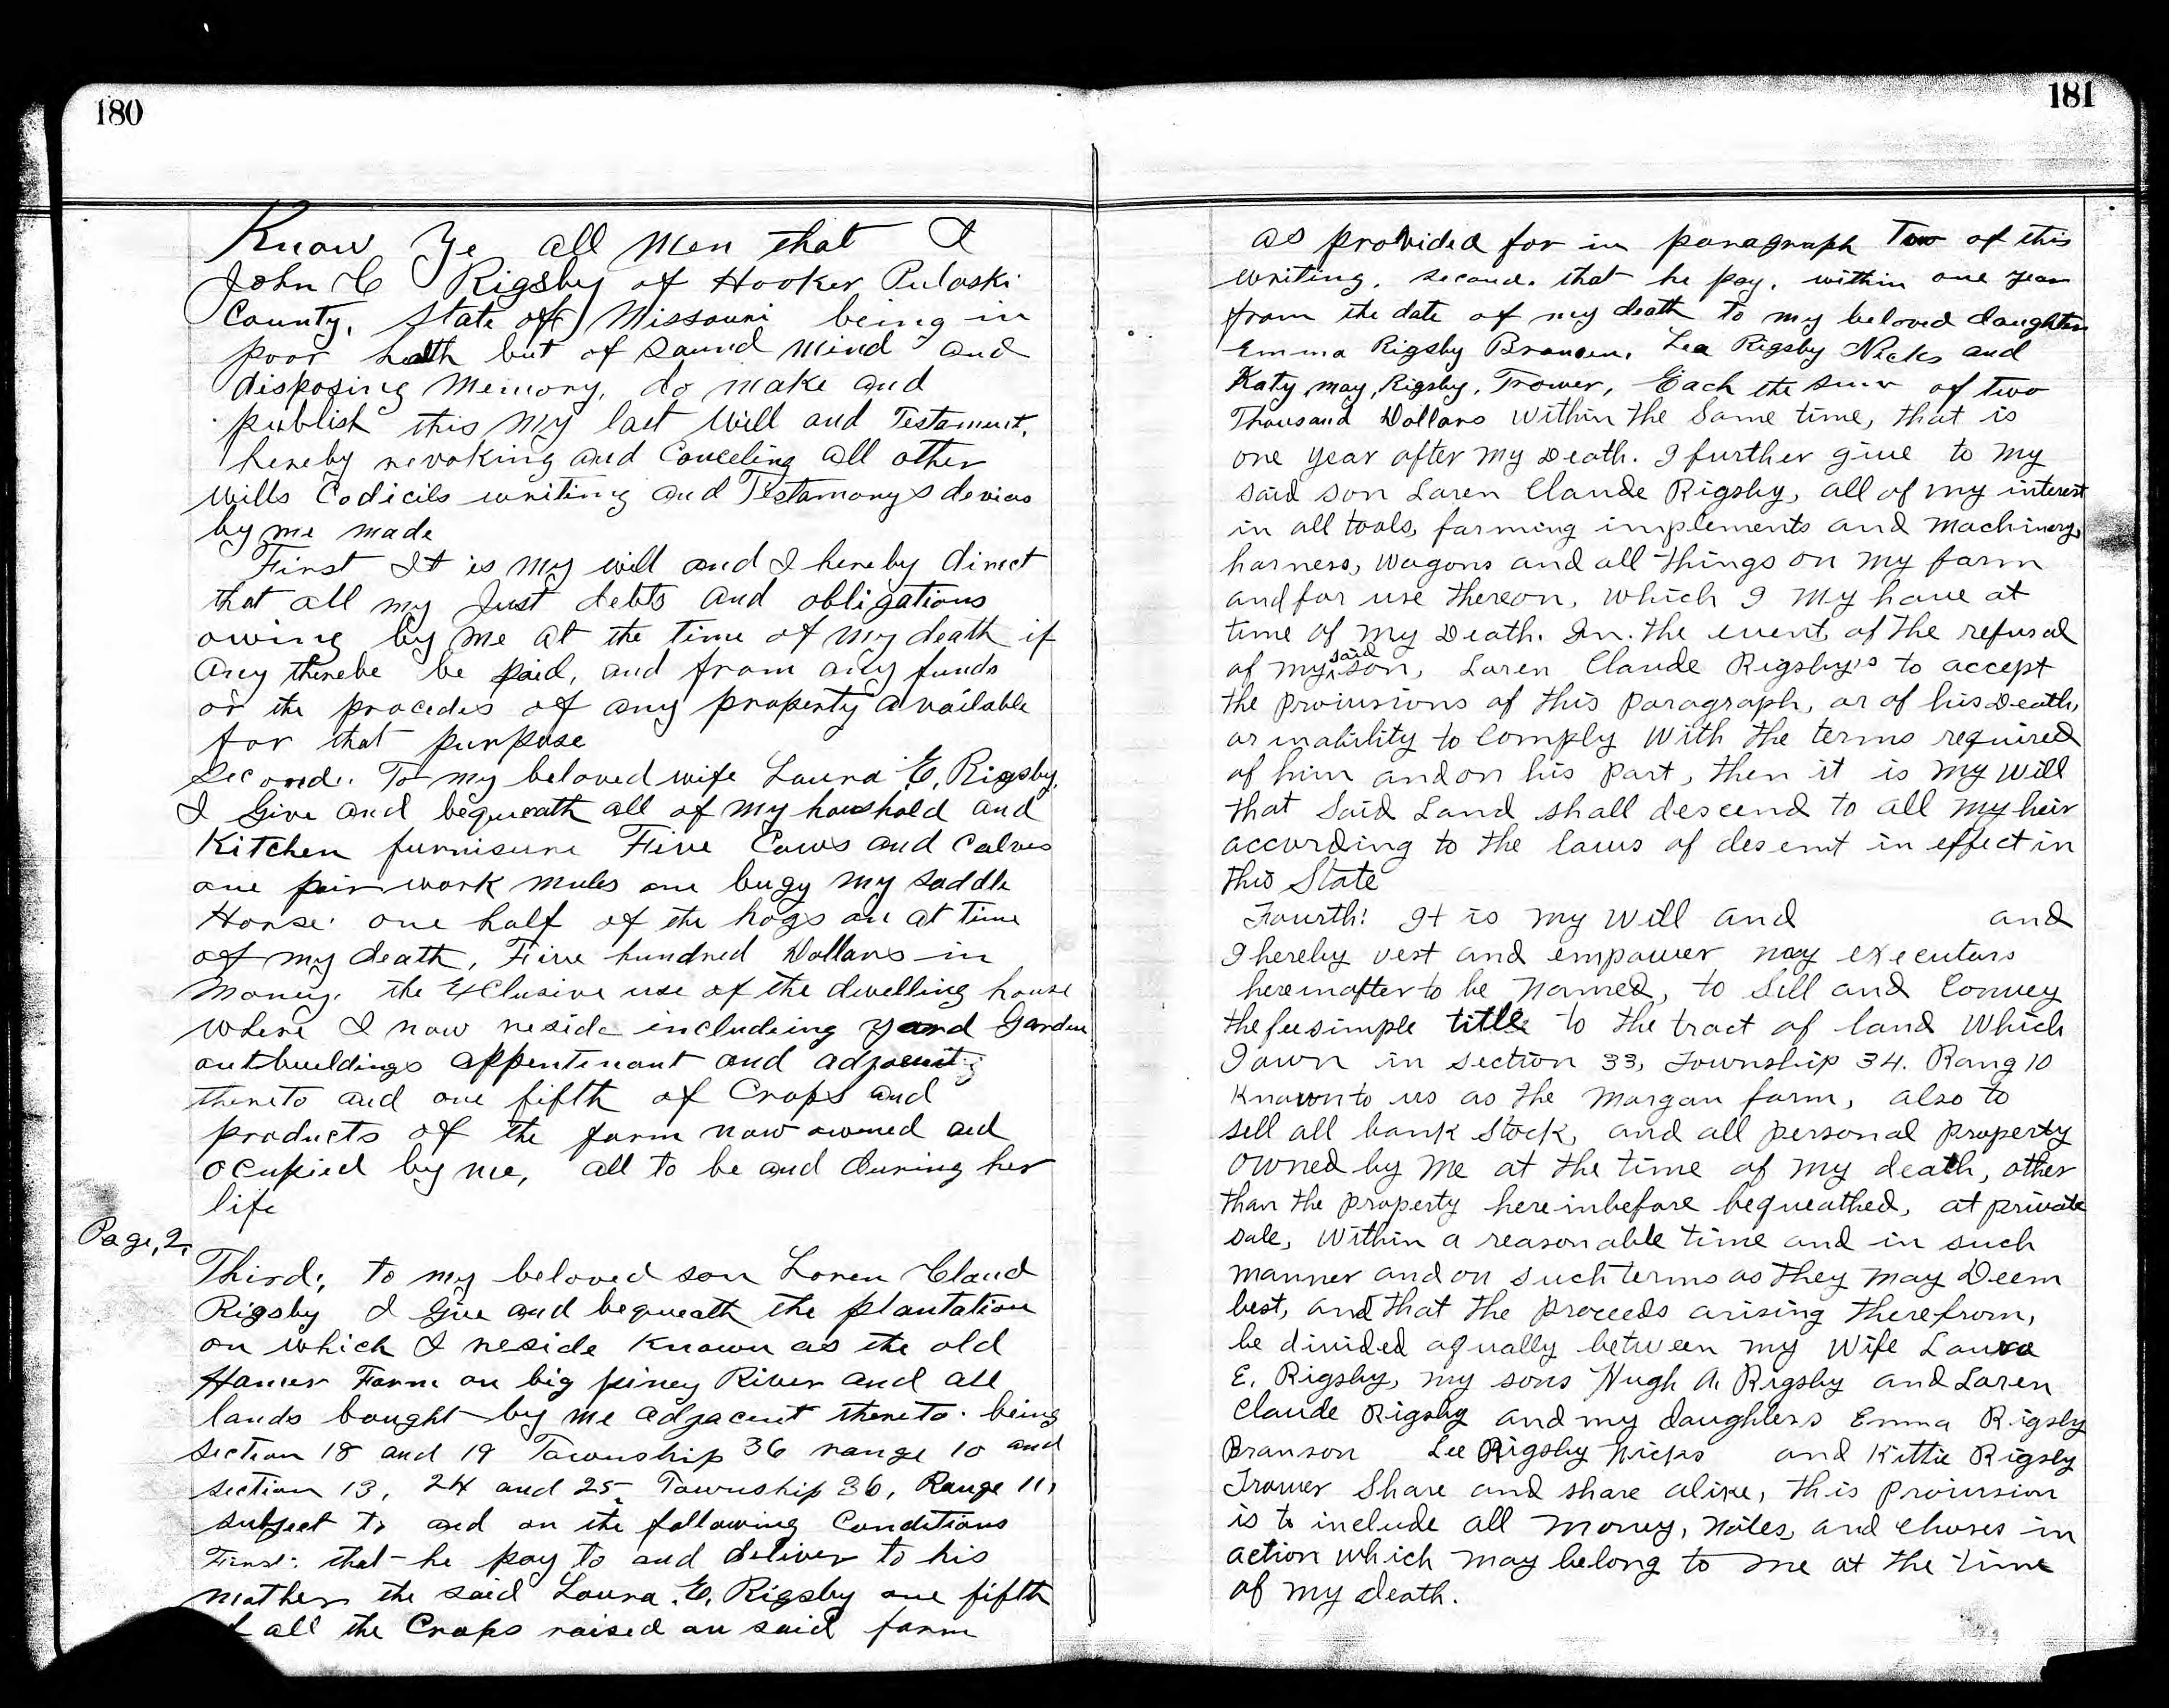 180
Know Ye all Men that I
John C Rigsby of Hooker Pulaski
County, State off Missouri being in
poor helth but of Sound Mind and
disposing Memory, do make and
publish this my last Will and Testament,
hereby revoking and Conceling all other
Wills Codicils writing and Testamonys devias
by me made
First It is my will and I hereby direct
that all my Just debts and obligations
owing by me at the time of my death if
any therebe be paid, and from any funds
or the procedes of any property available
for that purpose
Second. To my beloved wife Laura E. Rigsby.
I Give and bequeath all of my houshold and
Kitchen furnisure Five Cows and Calves
one pair work mules one bugy my saddle
Horse. one half of the hogs on at time
of my death, Five hundred Dollars in
Money. the Exclusive use of the dwelling house
where I now reside including yard Garden
outbuildings appentenant and adjacent
thereto and one fifth of Crops and
products of the farm now owned and
ocupied by me, all to be and during her
life
Page, 2,
Third; to my beloved son Loren Claud
Rigsby I Give and bequeath the plantation
on which I reside Known as the old
Hamer Farm on big piney River and all
lands bought by me adjacent thereto. being
section 18 and 19 Township 36 range 10 and
section 13, 24 and 25 Township 36, Range 11,
subject to and on the following Conditions
First: that he pay to and deliver to his
mother the said Laura E. Rigsby one fifth
all the Crops raised on said farm
181
as provided for in paragraph Two of this
writing. second. that he pay, within one year
from the date of my death to my beloved daughters
Emma Rigsby Branson, Lea Rigsby Nicks and
Katy may, Rigsby, Trower, Each the sum of two
Thousand Dollars Within the Same time, that is
one year after my Death. I further give to my
said son Loren Claude Rigsby, all of my interest
in all tools, farming implements and machinery,
harness, Wagons and all things on my farm
and for use thereon, which I my have at
time of my Death. In the event of the refusal
of my said son, Loren Claude Rigsby's to accept
the Proiusions of this Paragraph, or of his Death,
or inability to Comply With the terms required
of him and on his part, then it is My Will
that Said Land shall descend to all my heir
according to the laws of desent in effect in
this State
Fourth: It is my Will and and
I hereby vest and empower my executors
hereinafter to be Named, to Sell and Convey
the fee simple title to the tract of land Which
I own in section 33, Township 34. Rang 10
Known to us as the Morgan farm, also to
sell all bank Stock, and all personal Property
owned by me at the time of my death, other
than the property hereinbefore bequeathed, at private
sale, Within a reasonable time and in such
manner and on such terms as they may Deem
best, and that the Proceeds arising therefrom,
be divided aqually between my Wife Laura
E. Rigsby, my sons Hugh A. Rigsby and Loren
Claude Rigsby and my daughters Emma Rigsby
Branson Lee Rigsby Nicks and Kittie Rigsby
Trower Share and share alike, this Proiusion
is to include all Money, Notes, and Choses in
action which may belong to me at the time
of my death.